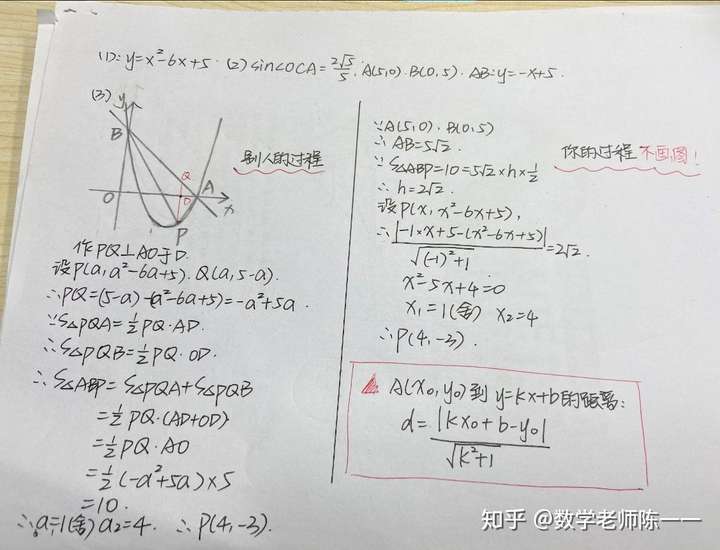 (1): y=x²-6x+5. (2) sin∠OCA=2√5/5. A(5,0). B(0,5). AB: y=-x+5.
(3)
y
B
Q
A
O
D
x
P
别人的过程
作PQ⊥AO于D
设P(a,a²-6a+5). Q(a,5-a).
∴PQ=(5-a)-(a²-6a+5)=-a²+5a.
∵S△PQA=1/2PQ·AD.
∴S△PQB=1/2PQ·OD.
∴S△ABP=S△PQA+S△PQB
=1/2PQ·(AD+OD)
=1/2PQ·AO
=1/2(-a²+5a)×5
=10.
∴a₁=1(舍) a₂=4. ∴P(4,-3).
∵A(5,0). B(0,5)
∴AB=5√2.
你的过程 不画图!
∵S△ABP=10=5√2×h×1/2
∴h=2√2.
设P(x, x²-6x+5),
∴|-1×x+5-(x²-6x+5)|/√((-1)²+1)=2√2.
x²-5x+4=0
x₁=1(舍) x₂=4
∴P(4,-3).
A(x₀,y₀)到y=kx+b的距离:
d=|kx₀+b-y₀|/√(k²+1)
知乎 @数学老师陈一一